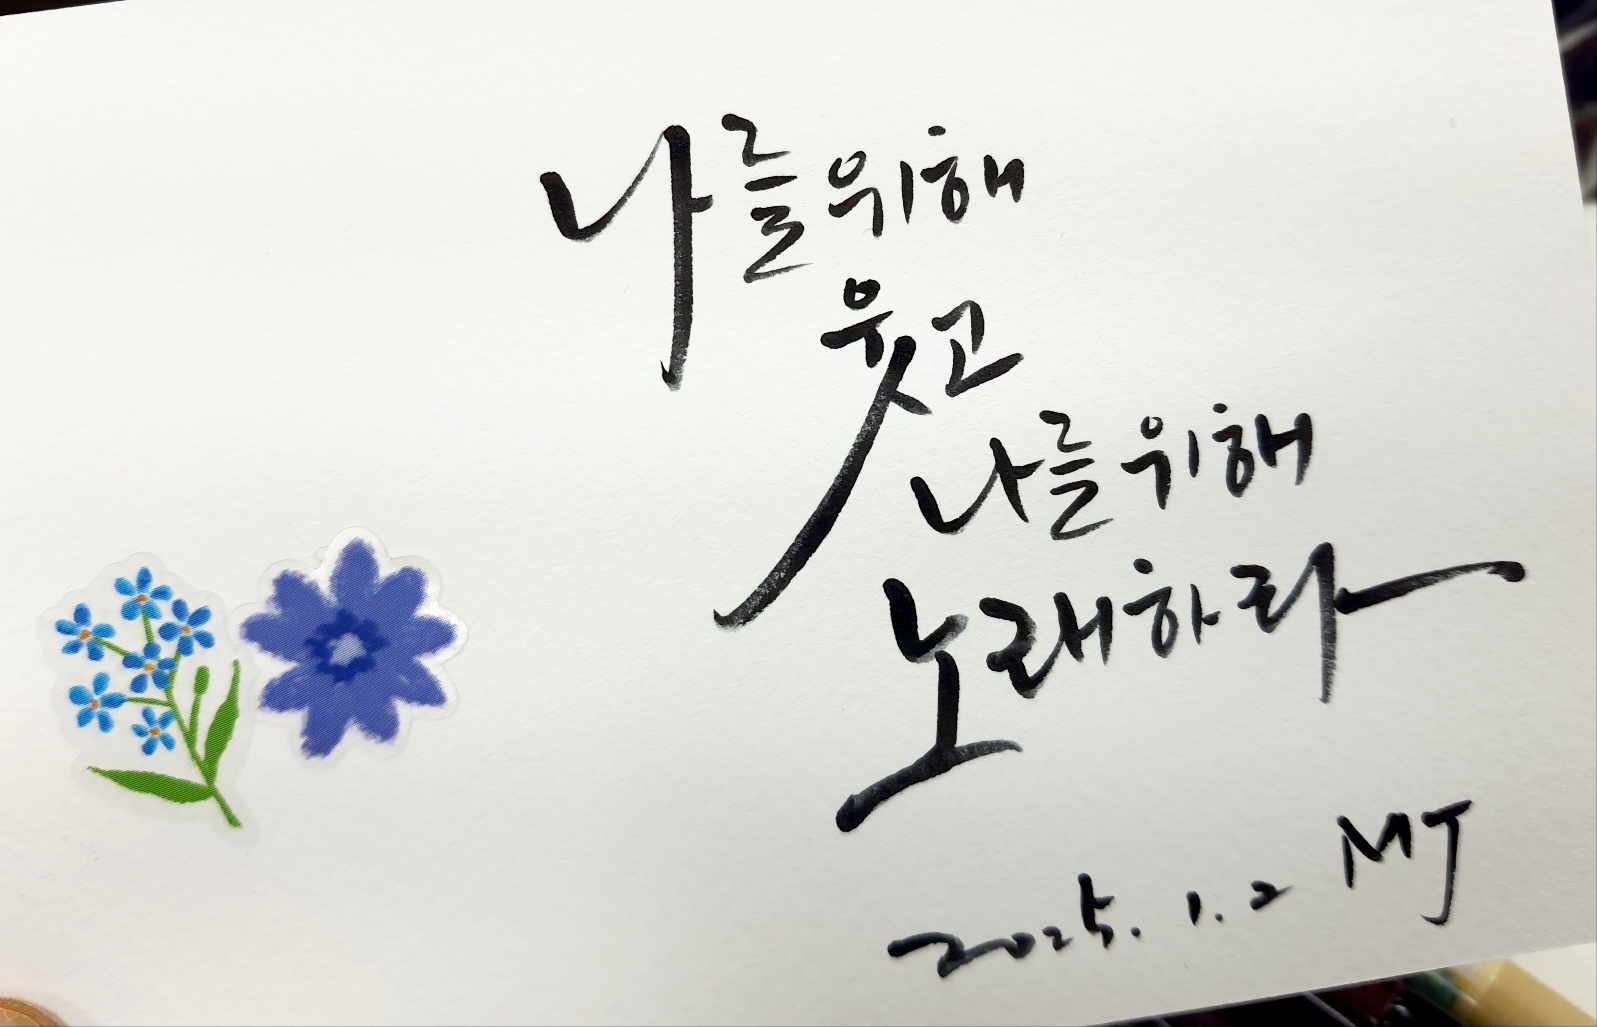 나를 위해
웃고
나를 위해
노래하라
2025. 1. 2 MJ